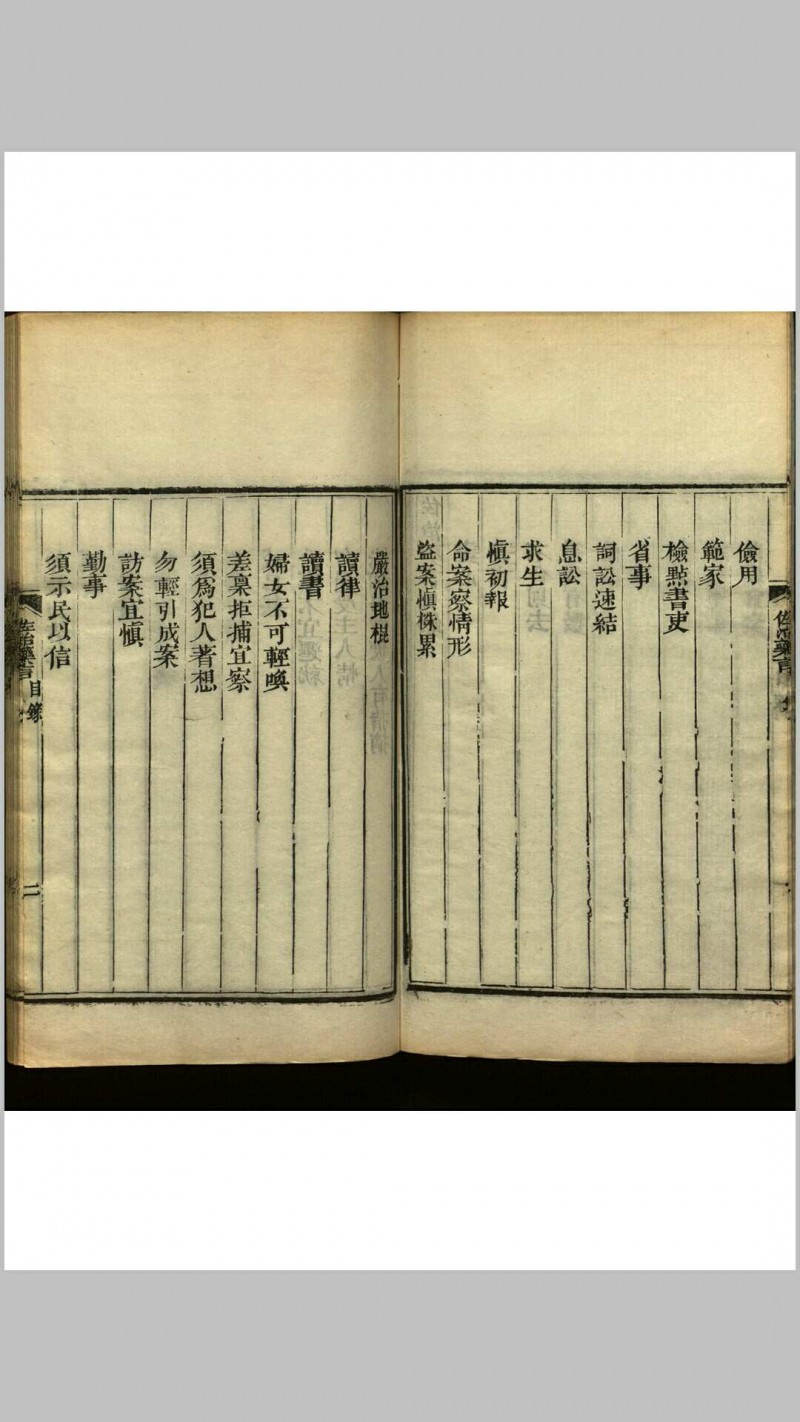 儉用
範家
檢點書吏
省事
詞訟速結
息訟
求生
愼初報
命案察情形
盜案愼株累
嚴治地棍
讀律
讀書
婦女不可輕喚
差稟拒捕宜察
須爲犯人著想
勿輕引成案
訪案宜愼
勤事
須示民以信
佐治藥言 目錄 二